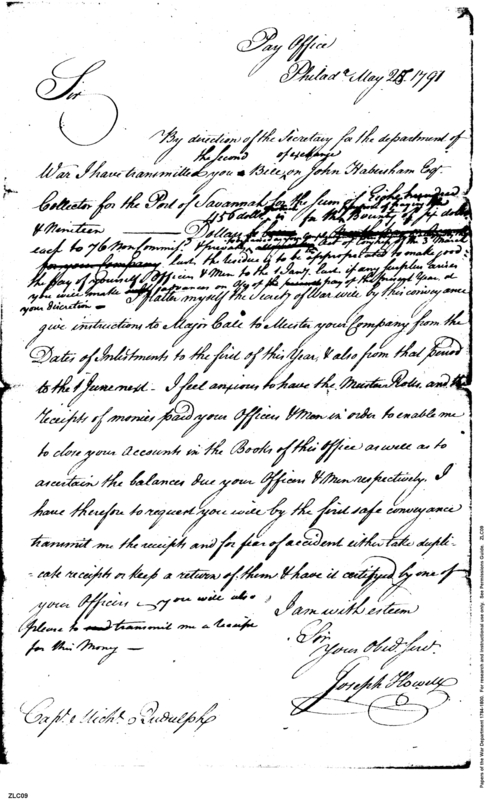 Pay Office
Philada May 25. 1791
Sir
By direction of the Secretary for the department of
the second of exchange
War I have transmitted you a Bill on John Habersham Esqr
Collector for the Port of Savannah for the sum of Eight hundred
& Nineteen Dollars
456 dollars is for the Bounty of six dollars
each to 76 Non Commisd & privates Act of Congress of the 3 March
last, the residue is to be appropriated to make good
the pay of yourself Officers & Men to the 1 Jany last if any surplus arises
you will make advances on a/c of the pay of the present year at
your discretion — I flatter myself the Secrety of War will by this conveyance
give instructions to Major Call to Muster your Company from the
Dates of Inlistments to the first of this Year, & also from that period
to the 1 June next - I feel anxious to have the Muster Rolls, and the
receipts of monies paid your Officers & Men in order to enable me
to close your accounts in the Books of this Office as well as to
ascertain the balances due your Officers & Men respectively. I
have therefore to request you will by the first safe conveyance
transmit me the receipts and for fear of accident either take dupli-
cate receipts or keep a return of them & have it certifyed by one of
your Officers - you will also
please to transmit me a receipt
for this Money —
I am with esteem
Sir
Your Obed. Servt
Joseph Howell
Capt. Michl Rudulph
ZLC09
Papers of the War Department 1784-1800. For research and instructional use only. See Permissions Guide. ZLC09